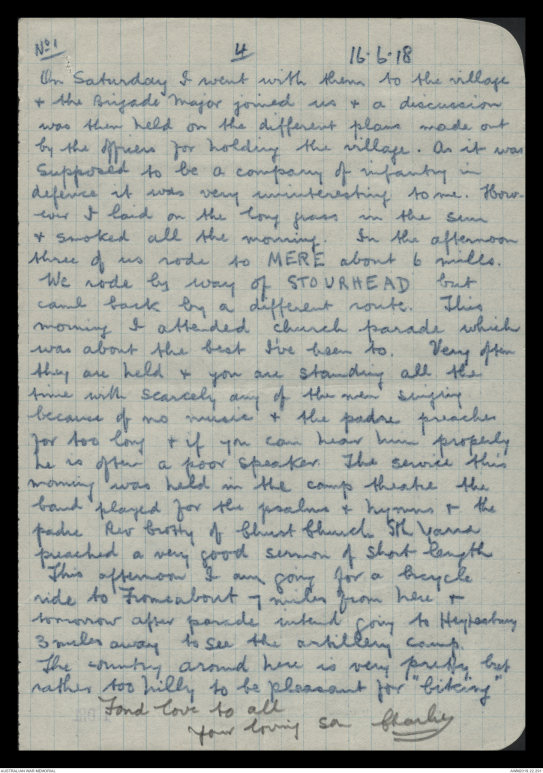 No 1 4 16.6.18
On Saturday I went with them to the village
& the Brigade Major joined us & a discussion
was then held on the different plans made out
by the officers for holding the village. As it was
supposed to be a company of infantry in
defence it was very uninteresting to me. How-
ever I laid on the long grass in the sun
& smoked all the morning. In the afternoon
three of us rode to MERE about 6 mills.
We rode by way of STOURHEAD but
came back by a different route. This
morning I attended church parade which
was about the best I've been to. Very often
they are held & you are standing all the
time with scarcely any of the men singing
because of no music & the padre preaches
for too long & if you can hear him properly
he is often a poor speaker. The service this
morning was held in the camp theatre the
band played for the psalms & hymns & the
padre Rev of Christ Church Sth Yarra
preached a very good sermon of short length
This afternoon I am going for a bicycle
ride to Frome about 7 miles from here &
tomorrow after parade intend going to Heytesbury
3 miles away to see the artillery camp.
The country around here is very pretty but
rather too hilly to be pleasant for "biking"
Fond love to all
Your loving son Charley
AUSTRALIAN WAR MEMORIAL